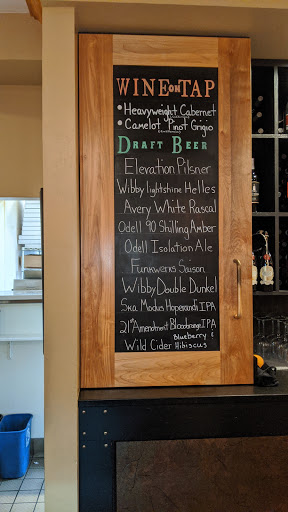 WINE on TAP
• Heavyweight Cabernet
• Camelot Pinot Grigio
DRAFT BEER
Elevation Pilsner
Wibby lightshine Helles
Avery White Rascal
Odell 90 Shilling Amber
Odell Isolation Ale
Funkwerks Saison
Wibby Double Dunkel
Ska Modus Hoperandi IPA
21st Amendment Bloodorange IPA
Wild Cider Blueberry &
Hibiscus